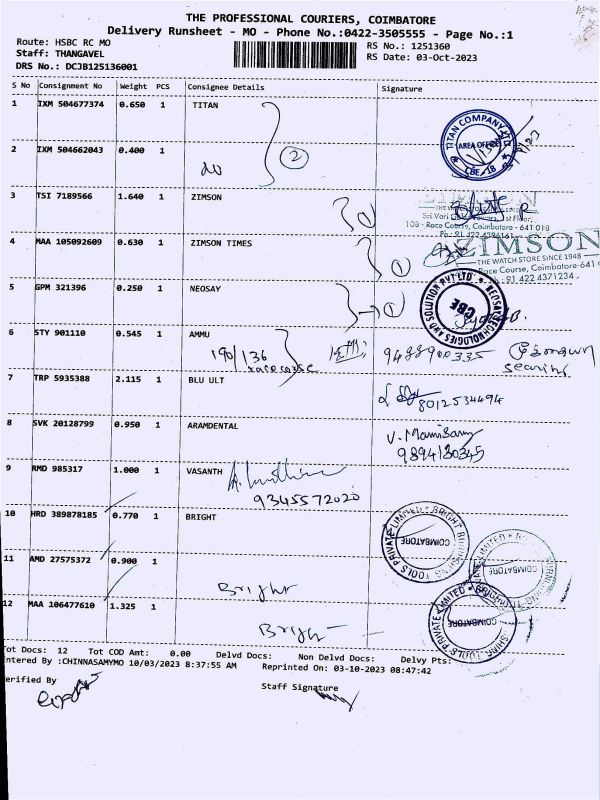 THE PROFESSIONAL COURIERS, COIMBATORE
Delivery Runsheet - MO - Phone No.:0422-3505555 - Page No.:1
Route: HSBC RC MO RS No.: 1251360
Staff: THANGAVEL RS Date: 03-Oct-2023
DRS No.: DCJB125136001
S No Consignment No Weight PCS Consignee Details Signature
1 IXM 504677374 0.650 1 TITAN
TITAN COMPANY LTD
AREA OFFICE
CBE - 18
2 IXM 504662043 0.400 1
2
3 TSI 7189566 1.640 1 ZIMSON
Race Course, Coimbatore - 641 018
4 MAA 105092609 0.630 1 ZIMSON TIMES
1
ZIMSON
THE WATCH STORE SINCE 1948
Race Course, Coimbatore-641
91 422 4371234
5 GPM 321396 0.250 1 NEOSAY
1
NEOSAY TECHNOLOGIES AND SOLUTION PVT LTD
CBE
6 STY 901110 0.545 1 AMMU
190/136
racecourse
9488900335
7 TRP 5935388 2.115 1 BLU ULT
8012534494
8 SVK 20128799 0.950 1 ARAMDENTAL
9894130345
9 RMD 985317 1.000 1 VASANTH
9345572020
10 HRD 389878185 0.770 1 BRIGHT
COIMBATORE
11 AMD 27575372 0.900 1
Bright
COIMBATORE
12 MAA 106477610 1.325 1
Bright
COIMBATORE
Tot Docs: 12 Tot COD Amt: 0.00 Delvd Docs: Non Delvd Docs: Delvy Pts:
Entered By :CHINNASAMYMO 10/03/2023 8:37:55 AM Reprinted On: 03-10-2023 08:47:42
Verified By Staff Signature